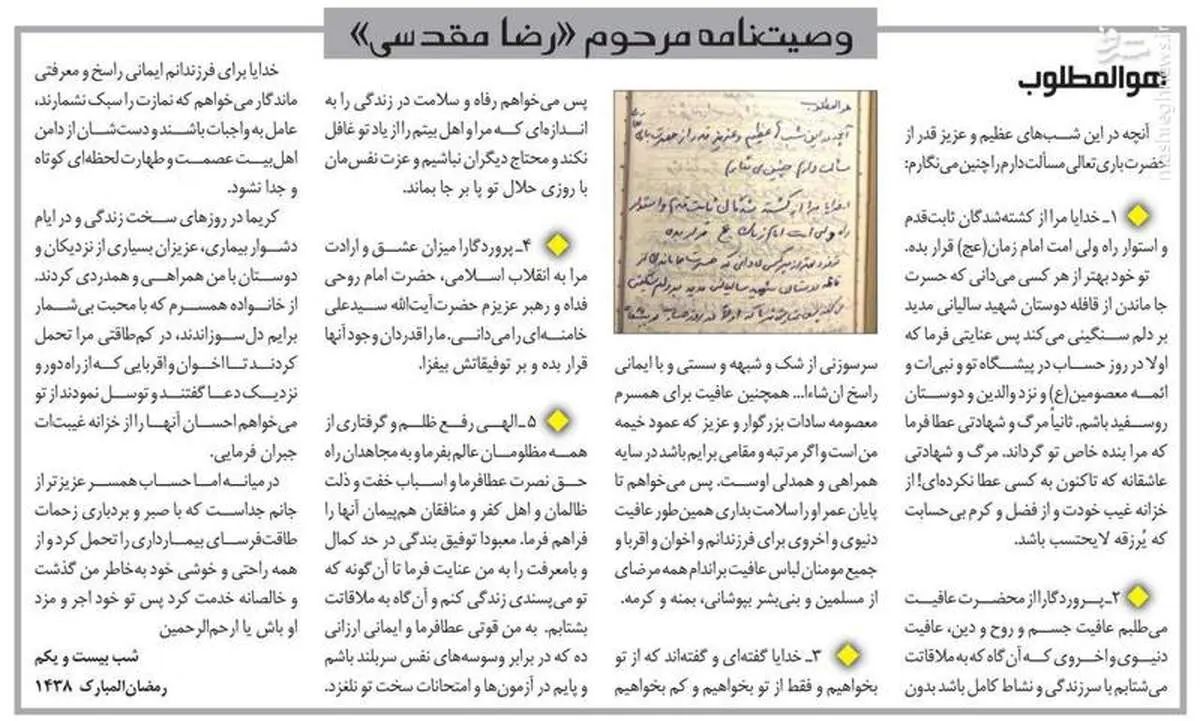 وصیت‌نامه مرحوم «رضا مقدسی»
هوالمطلوب
آنچه در این شب‌های عظیم و عزیز قدر از
حضرت باری‌تعالی مسألت دارم را چنین می‌نگارم:
۱ـ خدایا مرا از کشته‌شدگان ثابت‌قدم
و استوار راه ولی امت امام زمان(عج) قرار بده.
تو خود بهتر از هر کسی می‌دانی که حسرت
جا ماندن از قافله دوستان شهید سالیانی مدید
بر دلم سنگینی می‌کند پس عنایتی فرما که
اولا در روز حساب در پیشگاه تو و نبی‌ات و
ائمه معصومین(ع) و نزد والدین و دوستان
روسفید باشم. ثانیاً مرگ و شهادتی عطا فرما
که مرا بنده خاص تو گرداند. مرگ و شهادتی
عاشقانه که تاکنون به کسی عطا نکرده‌ای! از
خزانه غیب خودت و از فضل و کرم بی‌حسابت
که یُرزقه لایحتسب باشد.
۲ـ پروردگارا از محضرت عافیت
می‌طلبم عافیت جسم و روح و دین، عافیت
دنیوی و اخروی که آن گاه که به ملاقاتت
می‌شتابم با سرزندگی و نشاط کامل باشد بدون
هوالمطلوب
آنچه در این شب‌های عظیم و عزیز قدر از حضرت باری
مسألت دارم چنین می‌نگارم
خدایا مرا از کشته شدگان ثابت قدم و استوار
راه ولی امت امام زمان عج قرار بده
سرسوزنی از شک و شبهه و سستی و با ایمانی
راسخ ان‌شاءا... همچنین عافیت برای همسرم
معصومه سادات بزرگوار و عزیز که عمود خیمه
من است و اگر مرتبه و مقامی برایم باشد در سایه
همراهی و همدلی اوست. پس می‌خواهم تا
پایان عمر او را سلامت بداری همین‌طور عافیت
دنیوی و اخروی برای فرزندانم و اخوان و اقربا و
جمیع مومنان لباس عافیت بر اندام همه مرضای
از مسلمین و بنی‌بشر بپوشانی، بمنه و کرمه.
۳ـ خدایا گفته‌ای و گفته‌اند که از تو
بخواهیم و فقط از تو بخواهیم و کم بخواهیم
پس می‌خواهم رفاه و سلامت در زندگی را به
اندازه‌ای که مرا و اهل بیتم را از یاد تو غافل
نکند و محتاج دیگران نباشیم و عزت نفس‌مان
با روزی حلال تو پا بر جا بماند.
۴ـ پروردگارا میزان عشق و ارادت
مرا به انقلاب اسلامی، حضرت امام روحی
فداه و رهبر عزیزم حضرت‌آیت‌الله سیدعلی
خامنه‌ای را می‌دانی. ما را قدردان وجود آنها
قرار بده و بر توفیقاتش بیفزا.
۵ـ الهی رفع ظلم و گرفتاری از
همه مظلومان عالم بفرما و به مجاهدان راه
حق نصرت عطافرما و اسباب خفت و ذلت
ظالمان و اهل کفر و منافقان هم‌پیمان آنها را
فراهم فرما. معبودا توفیق بندگی در حد کمال
و بامعرفت را به من عنایت فرما تا آن‌گونه که
تو می‌پسندی زندگی کنم و آن گاه به ملاقاتت
بشتابم. به من قوتی عطافرما و ایمانی ارزانی
ده که در برابر وسوسه‌های نفس سربلند باشم
و پایم در آزمون‌ها و امتحانات سخت تو نلغزد.
خدایا برای فرزندانم ایمانی راسخ و معرفتی
ماندگار می‌خواهم که نمازت را سبک نشمارند،
عامل به واجبات باشند و دست‌شان از دامن
اهل‌بیت عصمت و طهارت لحظه‌ای کوتاه
و جدا نشود.
کریما در روزهای سخت زندگی و در ایام
دشوار بیماری، عزیزان بسیاری از نزدیکان و
دوستان با من همراهی و همدردی کردند.
از خانواده همسرم که با محبت بی‌شمار
برایم دل سوزاندند، در کم‌طاقتی مرا تحمل
کردند تا اخوان و اقربایی که از راه دور و
نزدیک دعا گفتند و توسل نمودند از تو
می‌خواهم احسان آنها را از خزانه غیبت‌ات
جبران فرمایی.
در میانه اما حساب همسر عزیزتر از
جانم جداست که با صبر و بردباری زحمات
طاقت‌فرسای بیمارداری را تحمل کرد و از
همه راحتی و خوشی خود به‌خاطر من گذشت
و خالصانه خدمت کرد پس تو خود اجر و مزد
او باش یا ارحم‌الرحمین
شب بیست و یکم
رمضان‌المبارک ۱۴۳۸
mashreghnews.ir